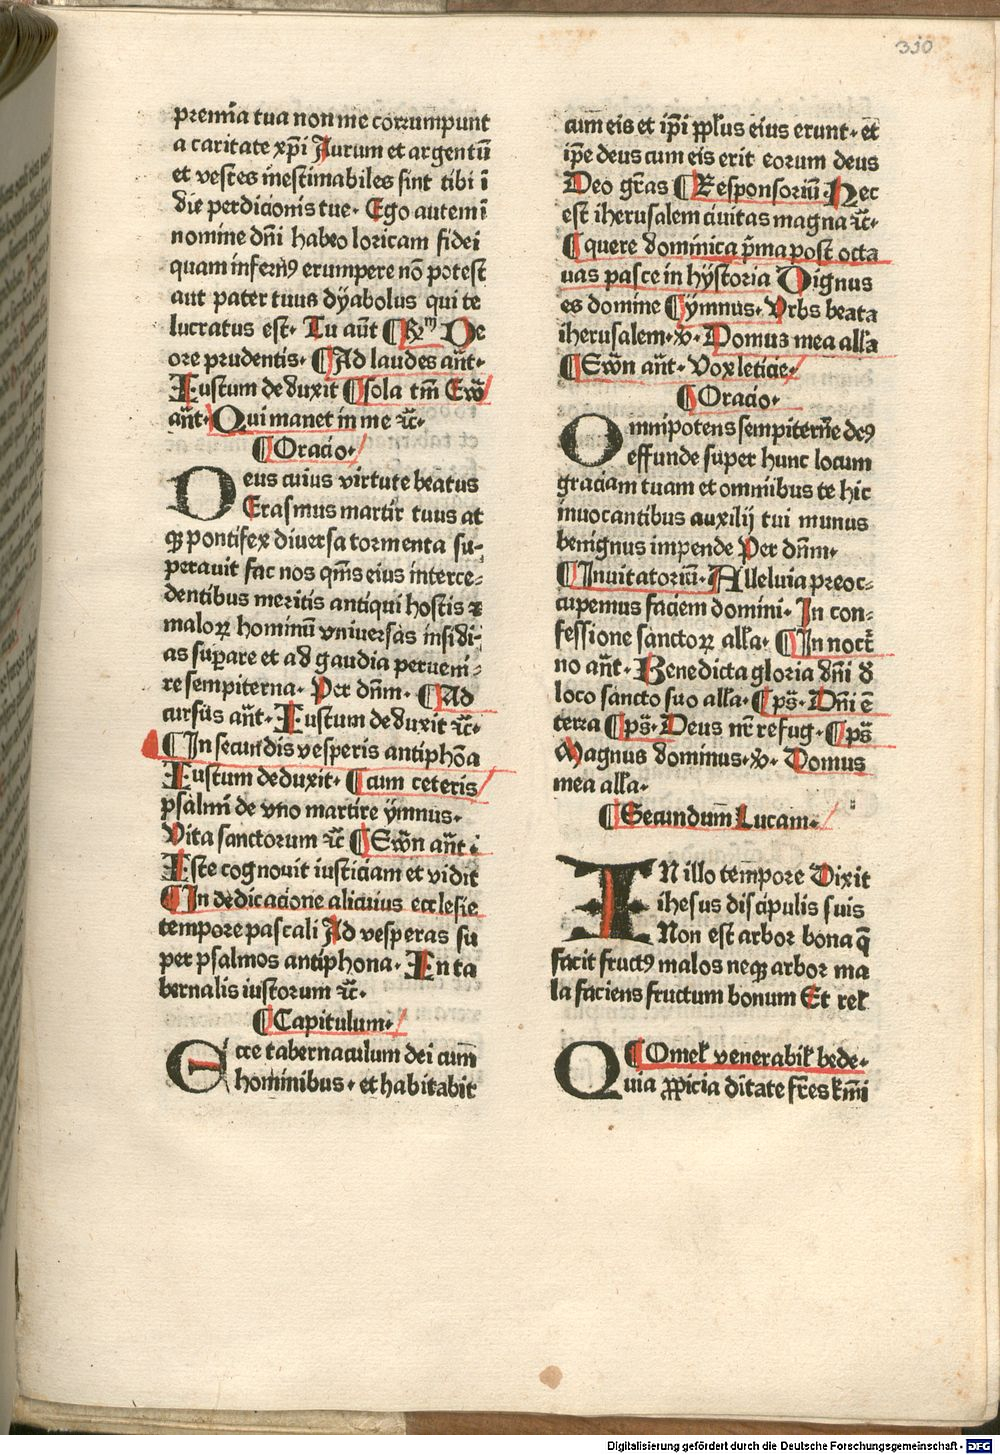 330
premia tua non me corrumpunt
a caritate xp̄i Aurum et argentū
et vestes inestimabiles sint tibi ī
die perdicionis tue. Ego autem ī
nomine dn̄i habeo loricam fidei
quam infernꝰ erumpere nō potest
aut pater tuus dÿabolus qui te
lucratus est. Tu aūt ¶ R̄m De
ore prudentis. ¶ Ad laudes an̄t.
Iustum deduxit ¶ sola tm̄ Ew̄
an̄t. Qui manet in me ⁊c̄.
¶ Oracio.
Deus cuius virtute beatus
Erasmus martir tuus at
qꝫ pontifex diuersa tormenta su⸗
perauit fac nos qm̄s eius interce⸗
dentibus meritis antiqui hostis ⁊
maloꝝ hominū vniuersas insidi⸗
as suꝑare et ad gaudia peruen̄i⸗
re sempiterna. Per dn̄m. ¶ Ad
cursus an̄t. Iustum deduxit ⁊c̄.
¶ In secundis vesperis antiphōa
Iustum deduxit. ¶ cum ceteris
psalmi de vno martire ÿmnus.
Vita sanctorum ⁊c̄ ¶ Ew̄n an̄t.
Iste cognouit iusticiam et vidit
¶ In dedicacione alicuius ecclesie
tempore pascali Ad vesperas su
per psalmos antiphona. In ta
bernalis iustorum ⁊c̄.
¶ Capitulum.
Ecce tabernaculum dei cum̄
hominibus. et habitabit
cum̄ eis et ip̄i ꝓpl̄us eius erunt. et
ip̄e deus cum eis erit eorum deus
Deo gr̄as ¶ Responsoriū. Hec
est iherusalem ciuitas magna ⁊c̄.
¶ quere dominica p̄ma post octa
uas pasce in hÿstoria Dignus
es domine ¶ ÿmnus. Vrbs beata
iherusalem. v. Domus mea all̄a
¶ Ew̄n an̄t. Vox leticie.
¶ Oracio.
Omnipotens sempiterne deꝰ
effunde super hunc locum
graciam tuam et omnibus te hic
inuocantibus auxilij tui munus
benignus impende Per dn̄m.
¶ Inuitatoriū. Alleluia preoc⸗
cupemus faciem domini. In con⸗
fessione sanctoꝝ all̄a. ¶ In noct̄
no an̄t. Benedicta gloria dn̄i d
loco sancto suo all̄a. ¶ ps̄. Dn̄i ē
terra ¶ ps̄. Deus nr̄ refug. ¶ ps̄
Magnus dominus. v. Domus
mea all̄a.
¶ Secundum̄ Lucam.
IN illo tem̄pore Dixit
ihesus discipulis suis
Non est arbor bona q̄
facit fructꝰ malos neqꝫ arbor ma
la faciens fructum bonum Et rel̄
¶ Omel̄ venerabil̄ bede.
Quia ꝓpicia ditate fr̄es km̄i
Digitalisierung gefördert durch die Deutsche Forschungsgemeinschaft - DFG